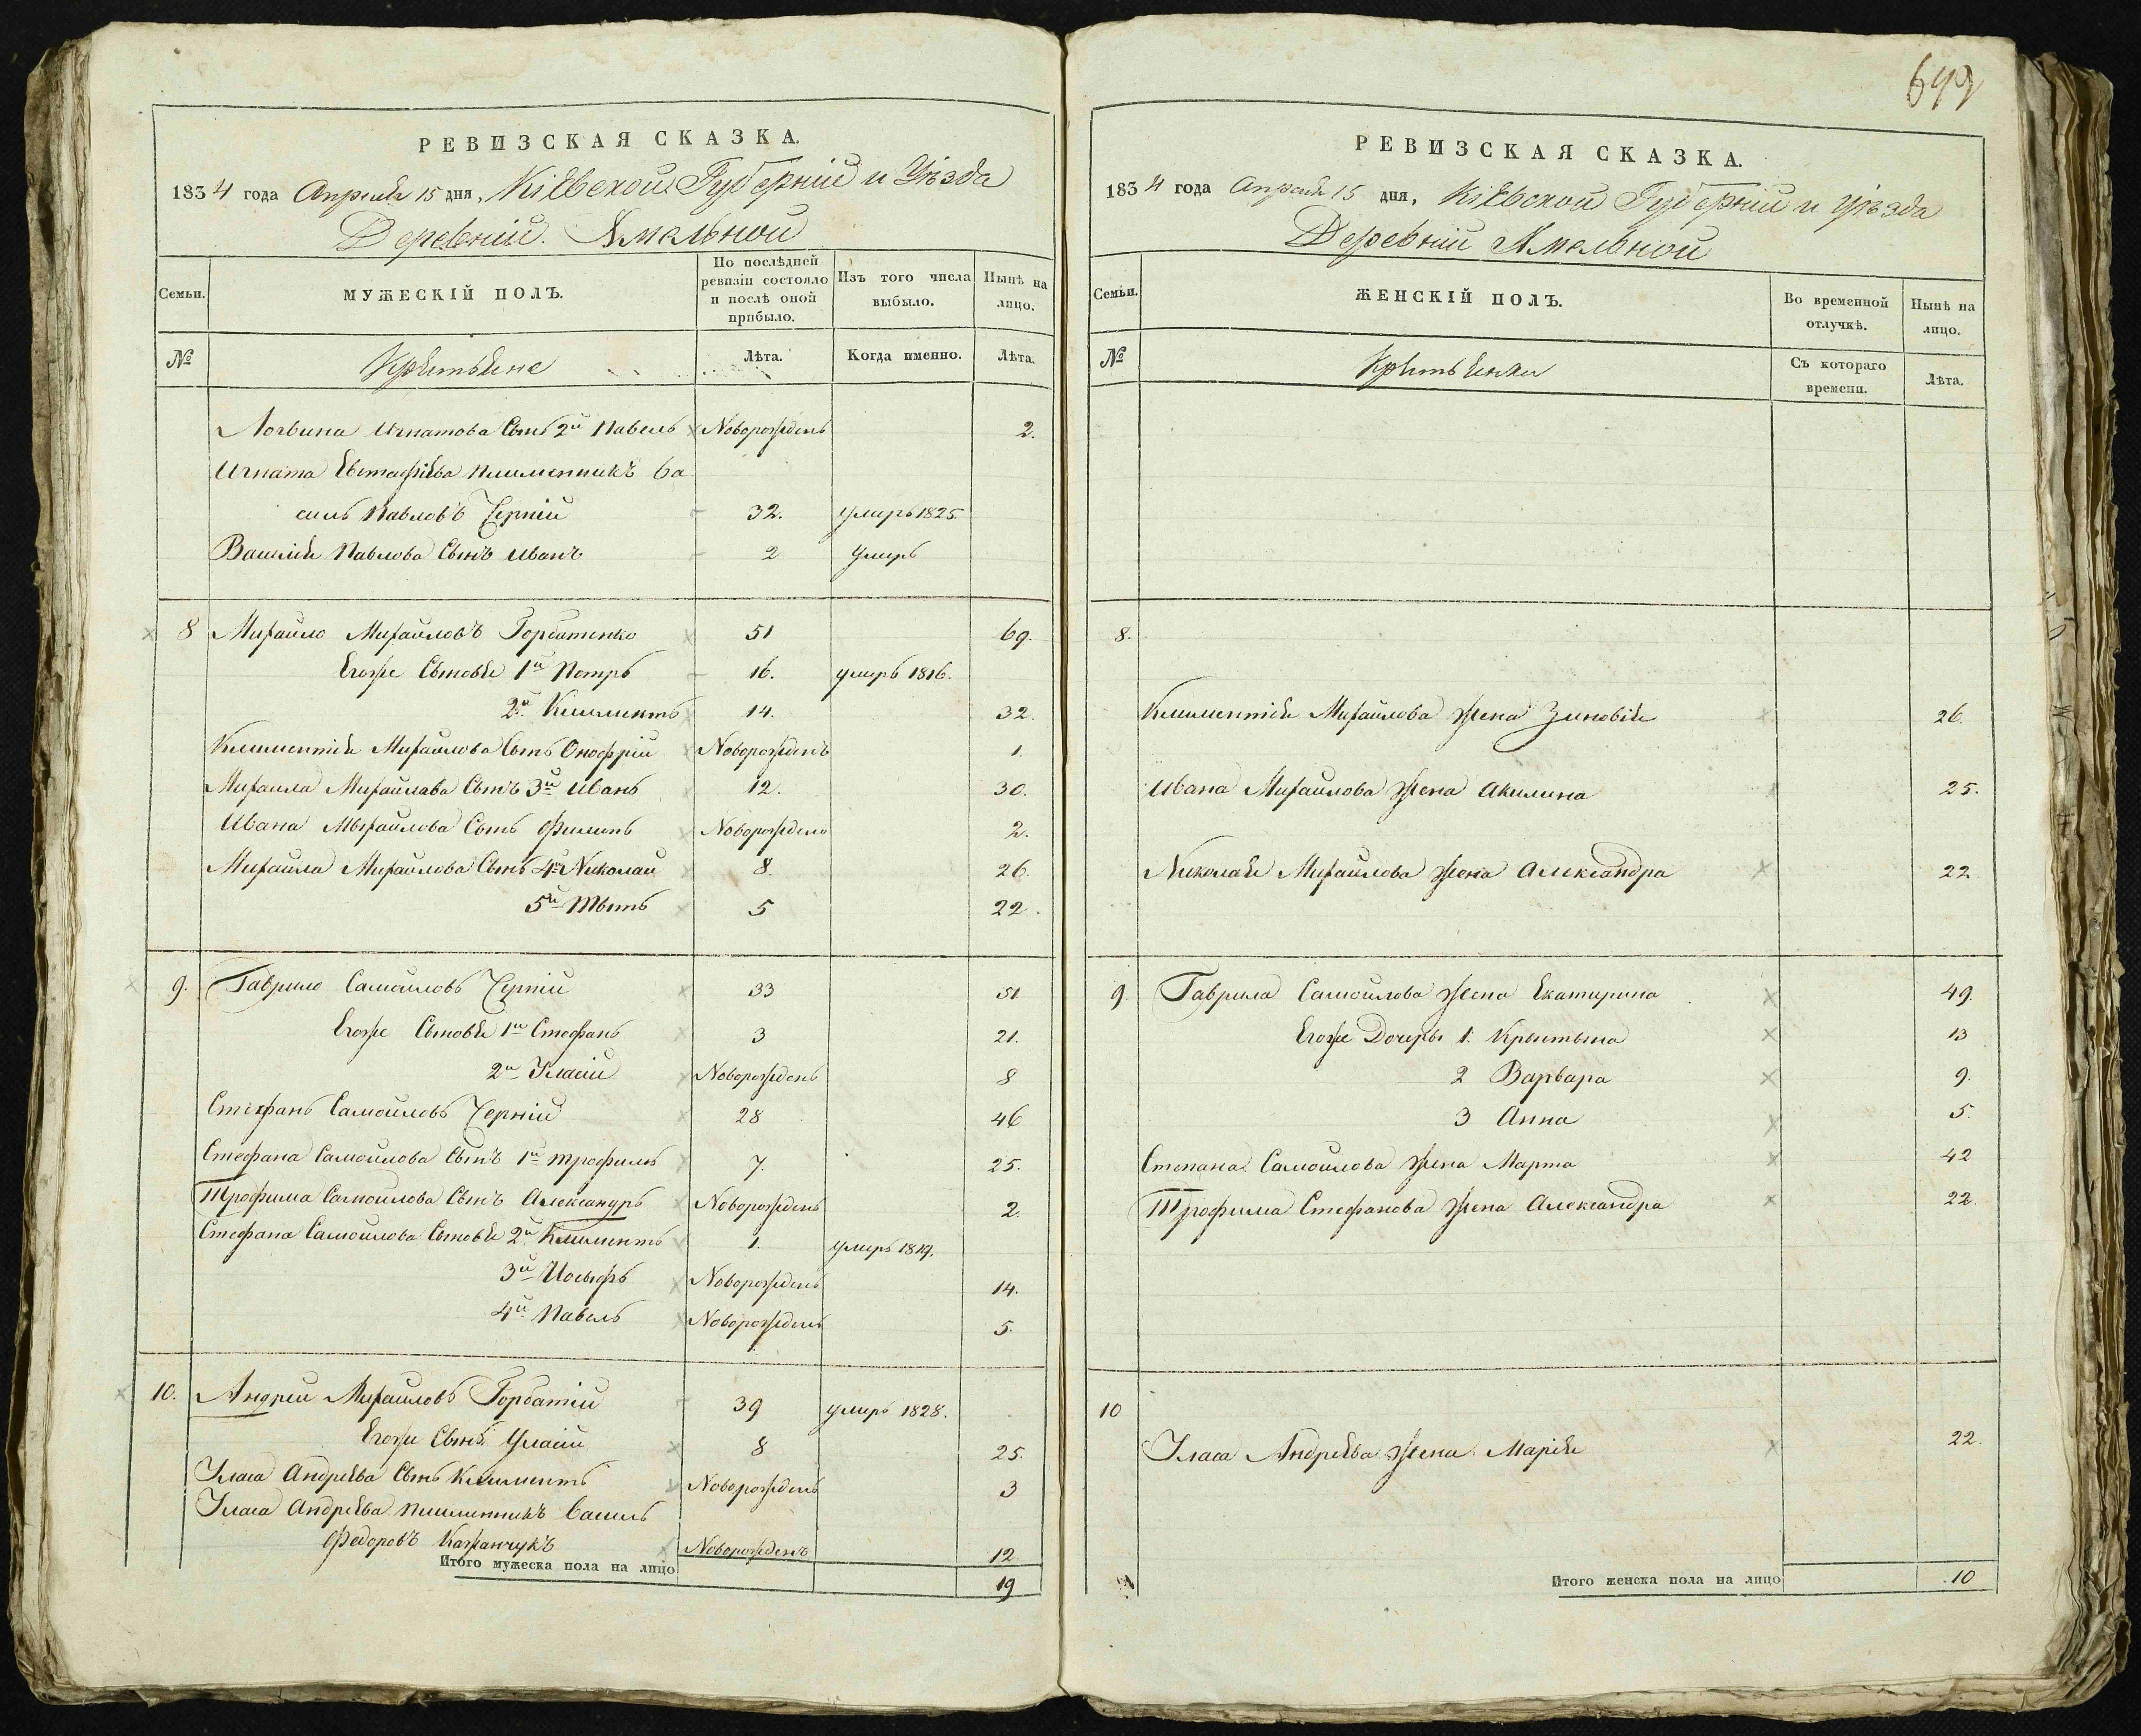 РЕВИЗСКАЯ СКАЗКА.
1834 года Апреля 15 дня, Кіевской Губерніи и Уѣзда
Деревніи Хмельной
Семьи. МУЖЕСКІЙ ПОЛЪ. По послѣдней ревизіи состояло и послѣ оной прибыло. Изъ того числа выбыло. Нынѣ на лицо.
№ Крестьяне Лѣта. Когда именно. Лѣта.
Логвина Игнатова Сынъ 2й Павелъ Новорожденъ 2.
Игната Евстафіева племенникъ Ва
силь Павловъ Черній 32. умеръ 1825.
Василія Павлова Сынъ Иванъ 2 умеръ
8 Михайло Михайловъ Горбатенко 51 69.
Егоже Сыновья 1й Петръ 16. умеръ 1816.
2й Климентъ 14. 32.
Климентія Михайлова Сынъ Онофрій Новорожденъ 1.
Михаила Михайлава Сынъ 3й Иванъ 12. 30.
Ивана Михайлова Сынъ Филипъ Новорожденъ 2.
Михайла Михайлова Сынъ 4й Николай 8. 26.
5й Титъ 5 22.
9. Гаврило Самойловъ Черній 33 51
Егоже Сыновья 1й Стефанъ 3 21.
2й Уласій Новорожденъ 8
Стефанъ Самойловъ Черній 28 46
Стефана Самойлова Сынъ 1й Трофимъ 7. 25.
Трофима Самойлова Сынъ Александръ Новорожденъ 2.
Стефана Самойлова Сыновья 2й Климентъ 1. умеръ 1819.
3й Иосифъ Новорожденъ 14.
4й Павелъ Новорожденъ 5.
10. Андрей Михайловъ Горбатій 39 умеръ 1828.
Егоже Сынъ Уласій 8 25.
Уласа Андреева Сынъ Климентъ Новорожденъ 3
Уласа Андреева племенникъ Василь
Федоровъ Новорожденъ 12
Итого мужеска пола на лицо 19
699
РЕВИЗСКАЯ СКАЗКА.
1834 года Апреля 15 дня, Кіевской Губерніи и Уѣзда
Деревніи Хмельной
Семьи. ЖЕНСКІЙ ПОЛЪ. Во временной отлучкѣ. Нынѣ на лицо.
№ Крестьянки Съ котораго времени. Лѣта.
8.
Климентія Михайлова жена Зиновія 26.
Ивана Михайлова жена Акилина 25.
Николая Михайлова жена Александра 22
9. Гаврила Самойлова жена Екатерина 49.
Егоже Дочеры 1. 13
2 Варвара 9.
3 Анна 5.
Степана Самойлова жена Марта 42
Трофима Стефанова жена Александра 22.
10
Уласа Андреева жена Марія 22.
Итого женска пола на лицо 10